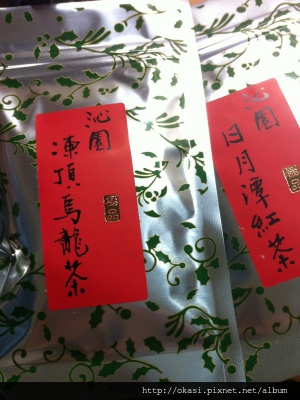 沁園
凍頂烏龍茶
極品
沁園
日月潭紅茶
極品
http://okasi.pixnet.net/album